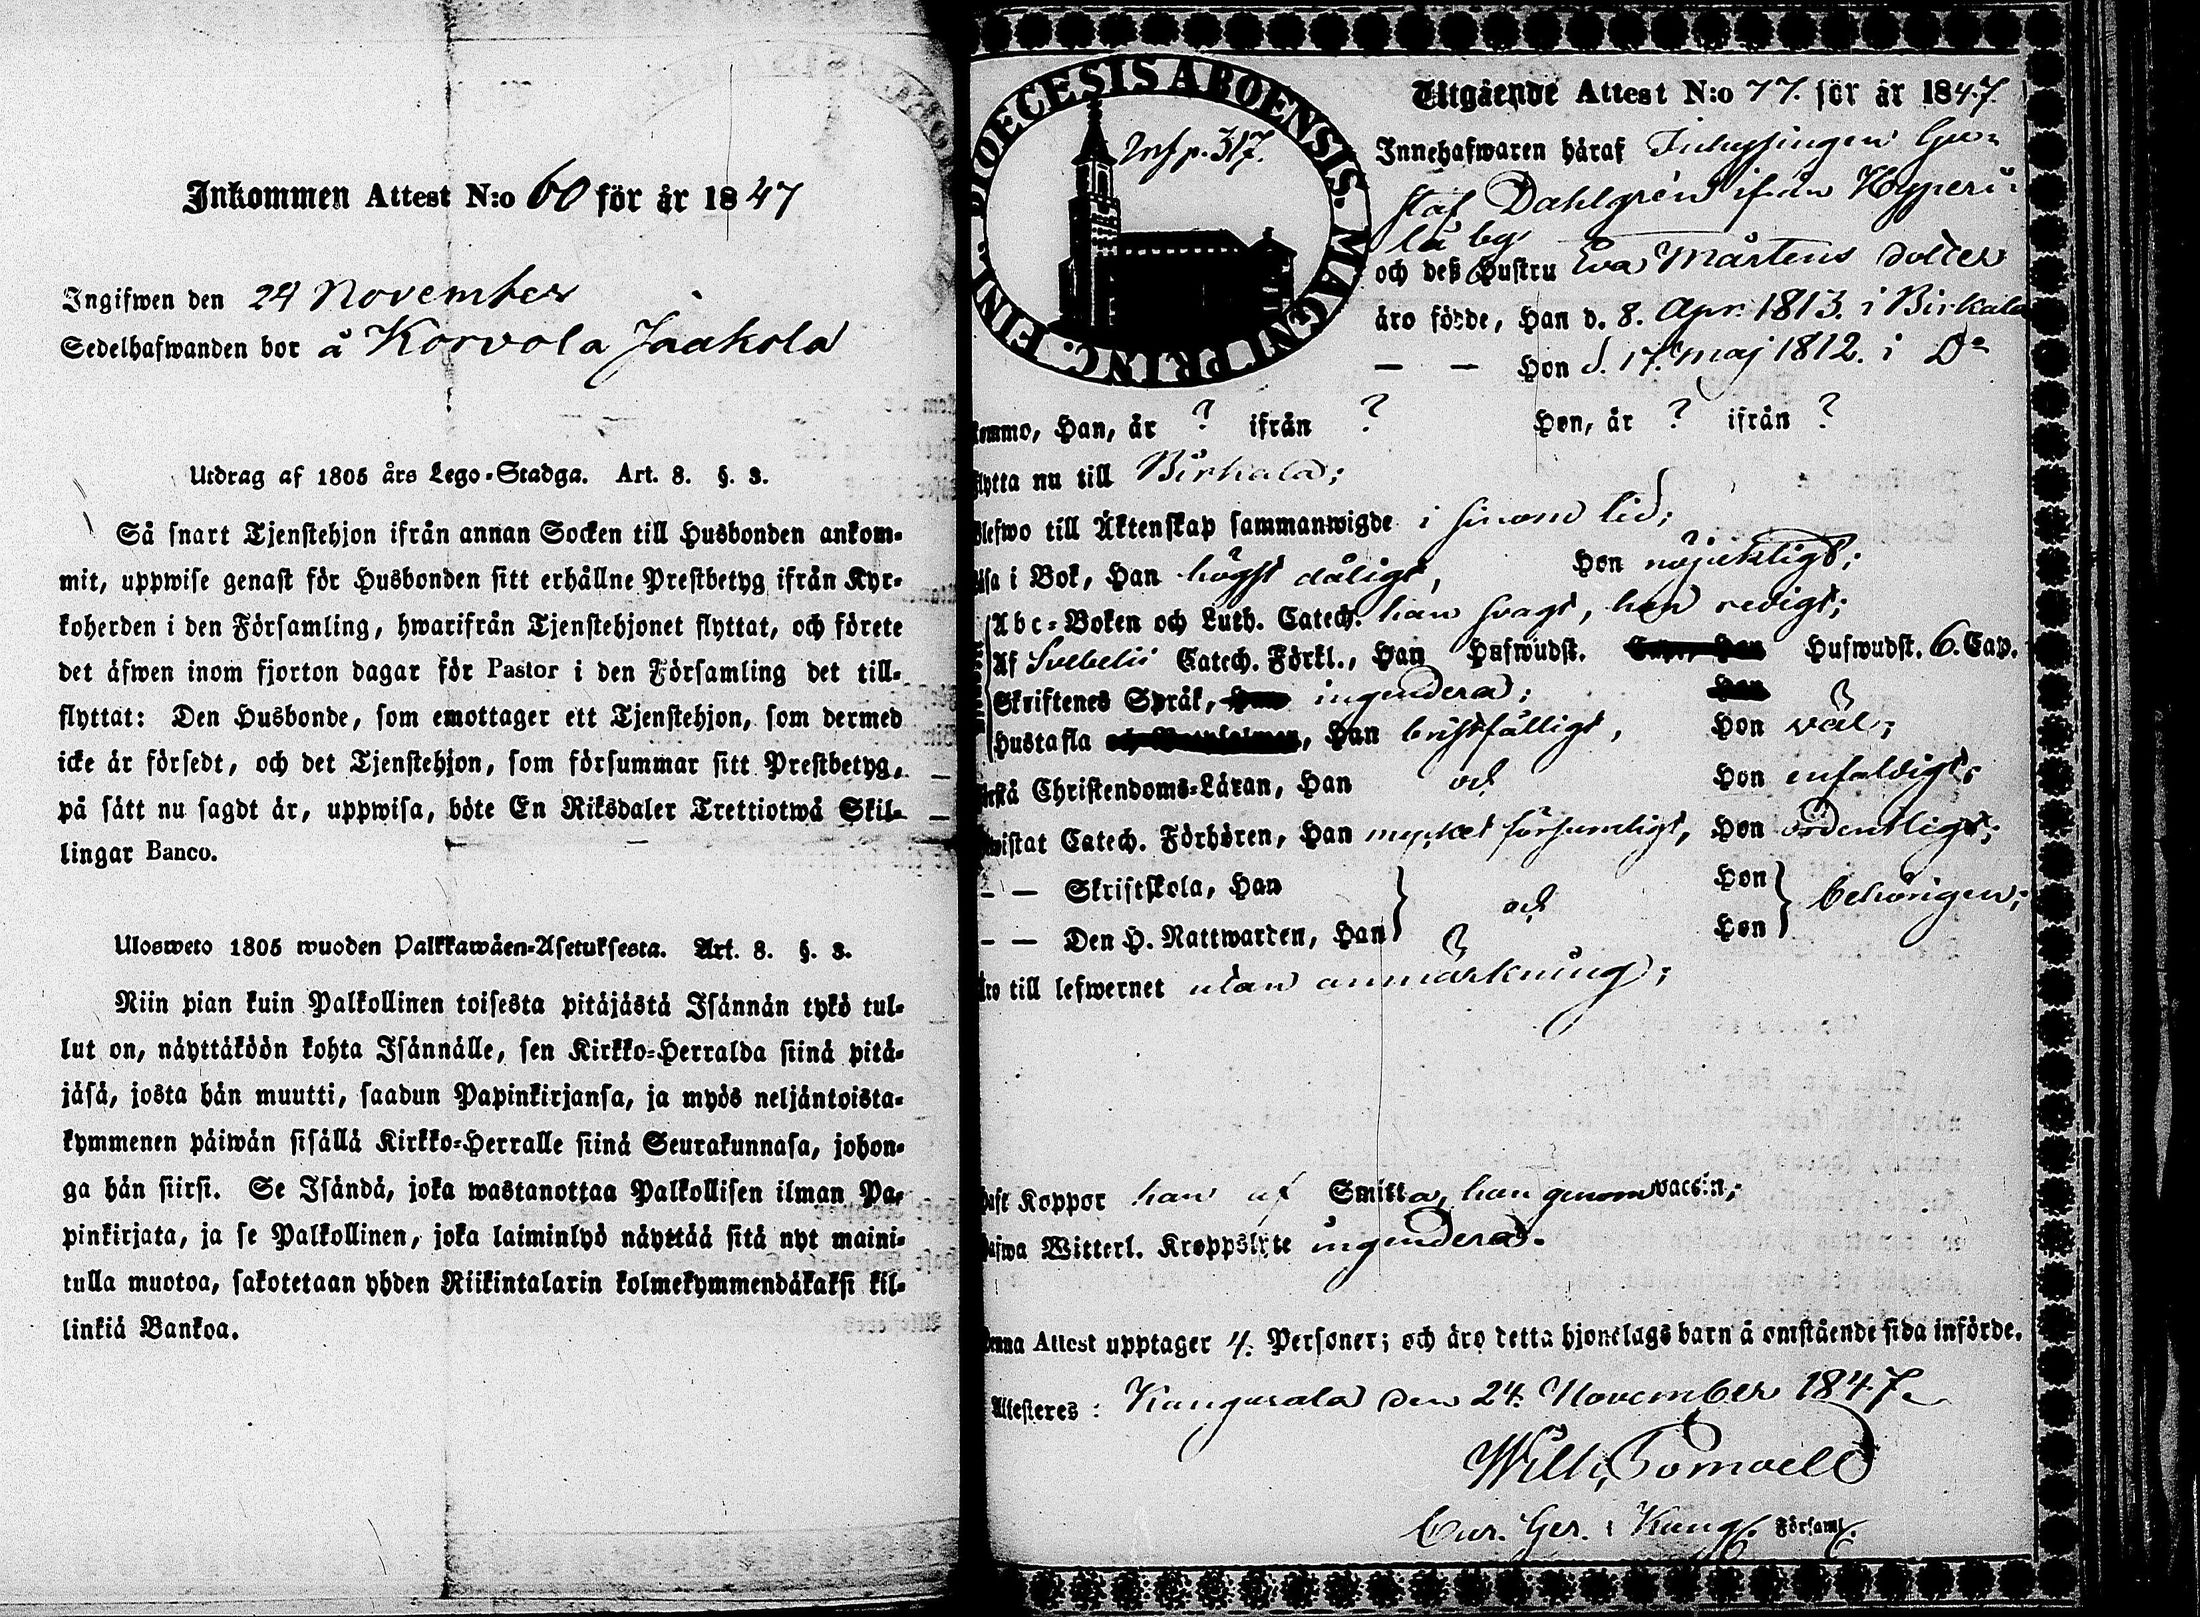 Inkommen Attest N:o 60 för år 1847
Ingifwen den 24 November
Sedelhafwanden bor å Korvola Jaakola
Utdrag af 1805 års Lego-Stadga. Art. 8. §. 3.
Så snart Tjenstehjon ifrån annan Socken till Husbonden ankom-
mit, uppwise genast för Husbonden sitt erhållne Prestbetyg ifrån Kyr-
koherden i den Församling, hwarifrån Tjenstehjonet flyttat, och förete
det äfwen inom fjorton dagar för Pastor i den Församling det till-
flyttat: Den Husbonde, som emottager ett Tjenstehjon, som dermed
icke är försedt, och det Tjenstehjon, som försummar sitt Prestbetyg,
på sätt nu sagdt är, uppwisa, böte En Riksdaler Trettiotwå Skil-
lingar Banco.
Ulosweto 1805 wuoden Palkkawäen-Asetuksesta. Art. 8. §. 3.
Niin pian kuin Palkollinen toisesta pitäjästä Isännän tykö tul-
lut on, näyttäköön kohta Isännälle, sen Kirkko-Herralda siinä pitä-
jäsä, josta hän muutti, saadun Papinkirjansa, ja myös neljäntoista-
kymmenen päiwän sisällä Kirkko-Herralle siinä Seurakunnasa, johon-
ga hän siirsi. Se Isändä, joka wastanottaa Palkollisen ilman Pa-
pinkirjata, ja se Palkollinen, joka laiminlyö näyttää sitä nyt maini-
tulla muotoa, sakotetaan yhden Riikintalarin kolmekymmendäkaksi kil-
linkiä Bankoa.
DIOECESIS ABOENSIS. MAGNI PRINC. FINL.
p. 317.
Utgående Attest N:o 77. för år 1847.
Innehafwaren häraf Inhysingen Gu-
staf Dahlgrén ifrån Hyperi-
lä by
och dess Hustru Eva Mårtens dotter
äro födde, Han d. 8. Apr. 1813. i Birkala
— — Hon d. 17. Maj 1812. i Do
kommo, Han, år ? ifrån ? Hon, år ? ifrån ?
flytta nu till Birkala;
blefwo till Äktenskap sammanwigde i sinom tid;
läsa i Bok, Han högst dåligt, Hon nöjaktligt;
Abc-Boken och Luth. Catech. han svagt, hon redigt;
Af Svebelii Catech. Förkl., Han Hufwudst. Hufwudst. 6. Cap.
Skriftenes Språk, ingendera;
Hustafla, Han bristfälligt, Hon väl;
förstå Christendoms-Läran, Han och Hon enfaldigt;
bewistat Catech. Förhören, Han mycket försumligt, Hon ordentligt;
— — Skriftskola, Han och Hon behörigen;
— — Den H. Nattwarden, Han Hon
äro till lefwernet utan anmärkning;
haft Koppor han af Smitta, hon genom vaccin;
hafwa Witterl. Kroppslyte ingendera.
Denna Attest upptager 4. Personer; och äro detta hjonelags barn å omstående sida införde.
Attesteres: Kangasala den 24. November 1847.
Cur. Ger. i Kang. Församl.